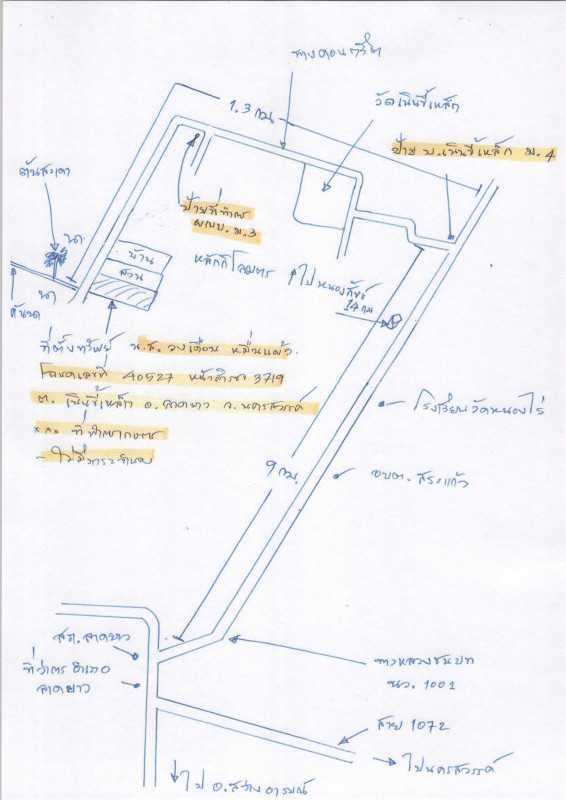 ทางคอนกรีต
1.3 กม.
วัดเนินขี้เหล็ก
ป้าย บ.เนินขี้เหล็ก ม.4
ต้นสะเดา
ป้ายที่ทำการ
ผญบ. ม.3
นา
บ้าน
สวน
หลักกิโลเมตร
ไปหนองสังข์
14 กม
นา
คันนา
ที่ตั้งทรัพย์ น.ส. วงเดือน หมื่นแผ้ว
โฉนดเลขที่ 40527 หน้าสำรวจ 3719
ต. เนินขี้เหล็ก อ.ลาดยาว จ.นครสวรรค์
โรงเรียนวัดหนองไร่
9 กม.
อบต. สระแก้ว
สภ.ลาดยาว
ที่ว่าการอำเภอ
ลาดยาว
ทางหลวงชนบท
นว. 1001
สาย 1072
ไปนครสวรรค์
ไป อ.สว่างอารมณ์